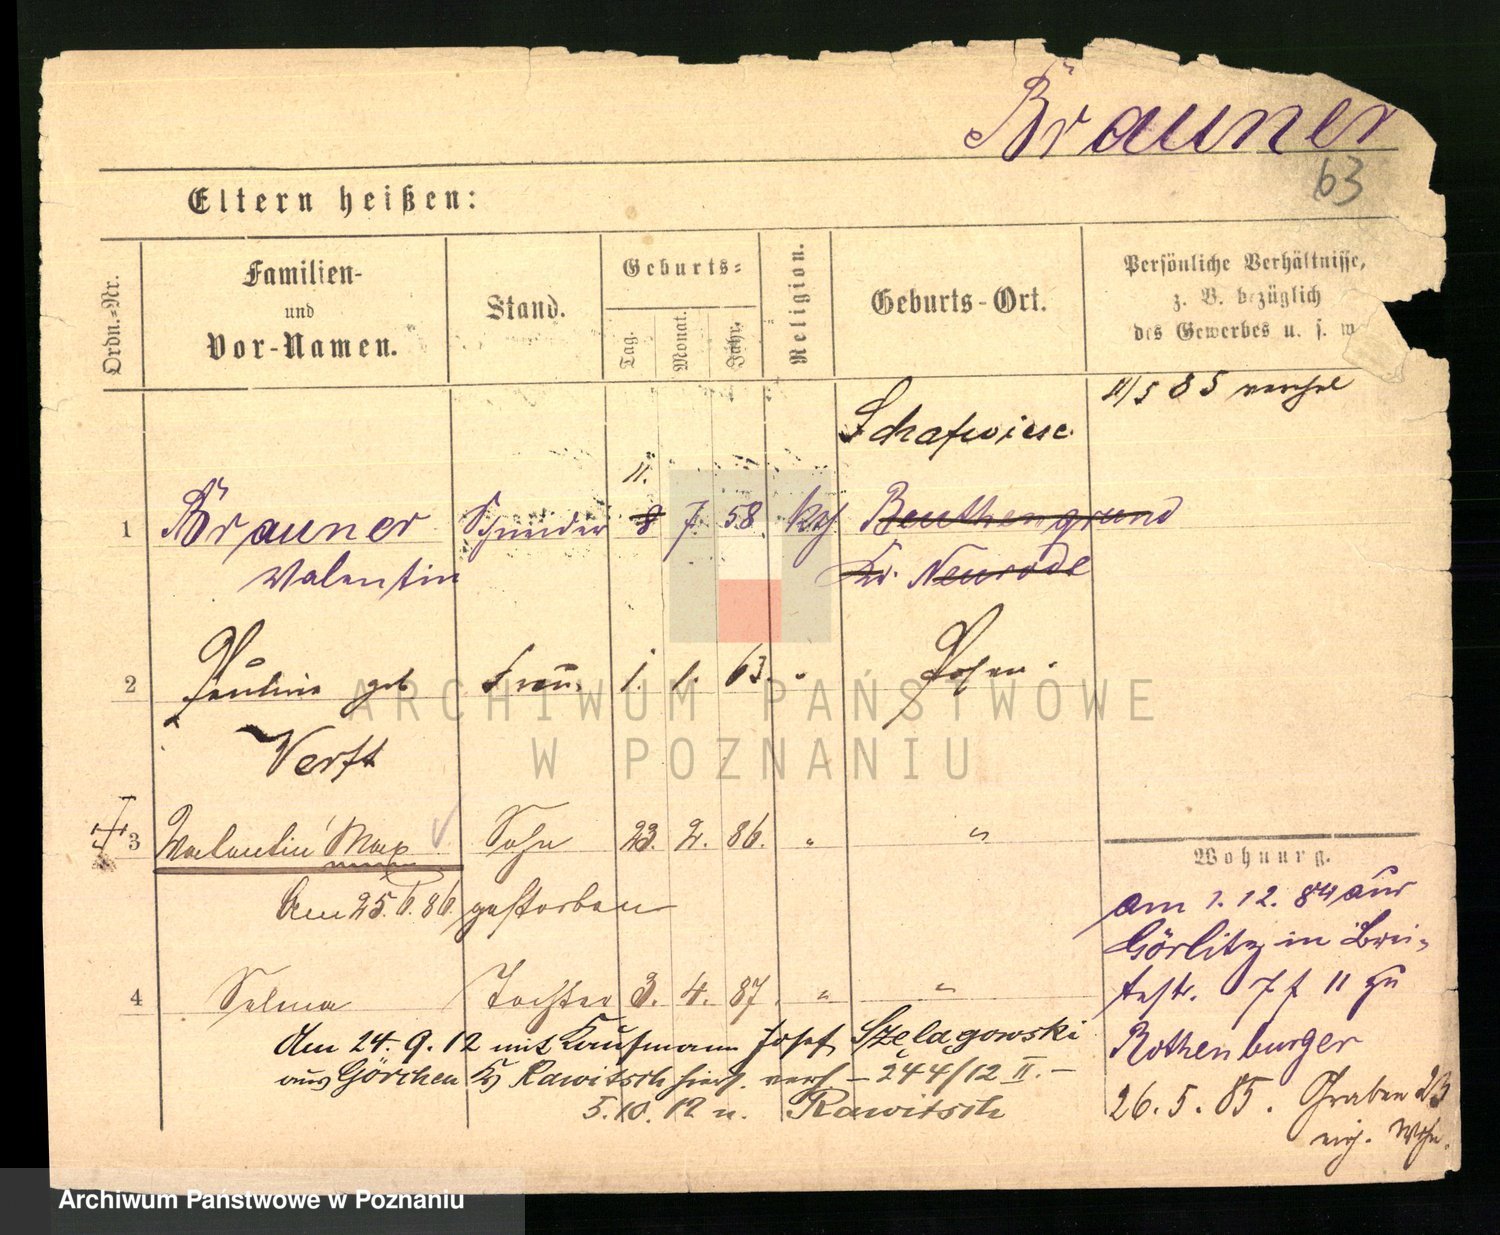 Brauner
63
Eltern heißen:
Ordn.-Nr.
Familien-
und
Vor-Namen.
Stand.
Geburts-
Tag.
Monat.
Jahr.
Religion.
Geburts-Ort.
Persönliche Verhältnisse,
z. B. bezüglich
des Gewerbes u. s. w
11/5 85
Schafwiese
11.
1 Brauner Schneider 8 7 58 kth Beuthengrund
Valentin Kr. Neurode
2 Pauline geb Frau 1. 1. 63. " Posen
Verft
3 Valentin Max Sohn 23. 2. 86. " "
Am 25.6.86 gestorben
4 Selma Tochter 3. 4. 87. " "
Am 24.9.12 mit Kaufmann Josef Szelagowski
aus Görchen Kr Rawitsch hier verh. – 244/12 II. –
5.10.12 n. Rawitsch
Wohnung.
am 1.12.84 aus
Görlitz in Brei-
testr. 7 f 11 zu
Rothenburger
26.5.85. Graben 23
eig. Wohn.
ARCHIWUM PAŃSTWOWE
W POZNANIU
Archiwum Państwowe w Poznaniu